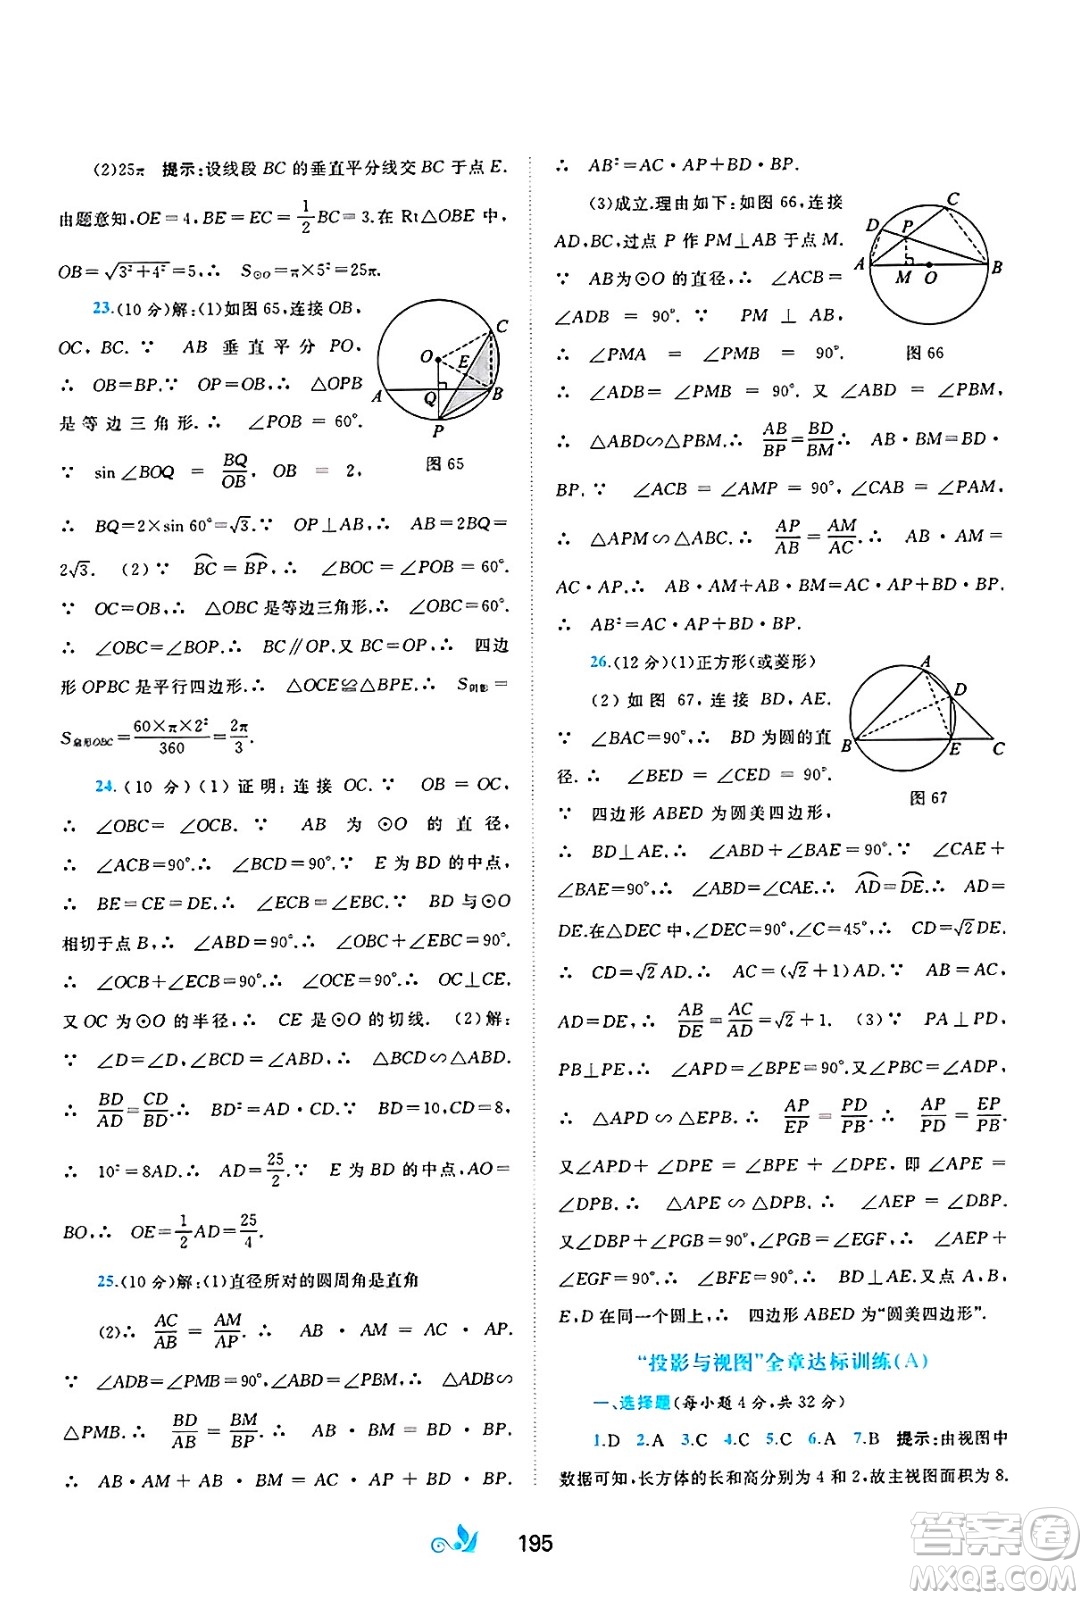 (2)25π 提示:设线段 BC 的垂直平分线交 BC 于点 E.
由题意知,OE=4,BE=EC=\frac{1}{2}BC=3.在 Rt△OBE 中,
OB=\sqrt{3²+4²}=5,∴ S⊙O=π×5²=25π.
23.(10 分)解:(1)如图 65,连接 OB,
OC,BC.∵ AB 垂直平分 PO,
∴ OB=BP.∵ OP=OB,∴ △OPB
是等边三角形.∴ ∠POB = 60°.
∵ sin∠BOQ = \frac{BQ}{OB}, OB = 2,
∴ BQ=2×sin 60°=√3.∵ OP⊥AB,∴ AB=2BQ=
2√3. (2)∵ \overset{\frown}{BC}=\overset{\frown}{BP},∴ ∠BOC=∠POB=60°.
∵ OC=OB,∴ △OBC 是等边三角形.∴ ∠OBC=60°.
∴ ∠OBC=∠POB.∴ BC∥OP.又 BC=OP,∴ 四边
形 OPBC 是平行四边形.∴ △OCE≌△BPE.∴ S阴影=
S扇形OBC=\frac{60×π×2²}{360}=\frac{2π}{3}.
24.(10 分)(1)证明:连接 OC.∵ OB=OC,
∴ ∠OBC=∠OCB.∵ AB 为 ⊙O 的直径,
∴ ∠ACB=90°.∴ ∠BCD=90°.∵ E 为 BD 的中点,
∴ BE=CE=DE.∴ ∠ECB=∠EBC.∵ BD 与⊙O
相切于点 B,∴ ∠ABD=90°.∴ ∠OBC+∠EBC=90°.
∴ ∠OCB+∠ECB=90°.∴ ∠OCE=90°.∴ OC⊥CE.
又 OC 为⊙O 的半径,∴ CE 是⊙O 的切线. (2)解:
∵ ∠D=∠D,∠BCD=∠ABD,∴ △BCD∽△ABD.
∴ \frac{BD}{AD}=\frac{CD}{BD}.∴ BD²=AD·CD.∵ BD=10,CD=8,
∴ 10²=8AD.∴ AD=\frac{25}{2}.∵ E 为 BD 的中点,AO=
BO,∴ OE=\frac{1}{2}AD=\frac{25}{4}.
25.(10 分)解:(1)直径所对的圆周角是直角
(2)∴ \frac{AC}{AB} = \frac{AM}{AP}. ∴ AB · AM = AC · AP.
∵ ∠ADB=∠PMB=90°.∴ △ADB∽
△PMB.∴ \frac{BD}{AB} = \frac{BM}{BP}. ∴ AB · BM = BD · BP.
∴ AB·AM+AB·BM=AC·AP+BD·BP.
∴ AB²=AC·AP+BD·BP.
(3)成立.理由如下:如图 66,连接
AD,BC,过点 P 作 PM⊥AB 于点 M.
∵ AB 为⊙O 的直径,∴ ∠ACB=
∠ADB = 90°.∵ PM ⊥ AB,
∴ ∠PMA = ∠PMB = 90°.
∴ ∠ADB = ∠PMB = 90°.又 ∠ABD = ∠PBM,
∴ △ABD∽△PBM.∴ \frac{AB}{BP}=\frac{BD}{BM}.∴ AB·BM=BD·
BP.∵ ∠ACB=∠AMP=90°,∠CAB=∠PAM,
∴ △APM∽△ABC.∴ \frac{AP}{AB}=\frac{AM}{AC}.∴ AB·AM=
AC·AP.∴ AB·AM+AB·BM=AC·AP+BD·BP.
∴ AB²=AC·AP+BD·BP.
26.(12 分)(1)正方形(或菱形)
(2)如图 67,连接 BD,AE.
∵ ∠BAC=90°,∴ BD为圆的直
径.∴ ∠BED = ∠CED = 90°.
∵ 四边形 ABED 为圆美四边形,
∴ BD⊥AE.∴ ∠ABD+∠BAE=90°.∵ ∠CAE+
∠BAE=90°,∴ ∠ABD=∠CAE.∴ \overset{\frown}{AD}=\overset{\frown}{DE}.∴ AD=
DE.在△DEC 中,∠DEC=90°,∠C=45°,∴ CD=√2DE.
∴ CD=√2AD.∴ AC=(√2+1)AD.∵ AB=AC,
AD=DE,∴ \frac{AB}{DE}=\frac{AC}{AD}=√2+1. (3)∵ PA⊥PD,
PB⊥PE,∴ ∠APD=∠BPE=90°.又∠PAD=∠PEB,
∴ △APD∽△EPB.∴ \frac{AP}{EP}=\frac{PD}{PB}.∴ \frac{AP}{PD}=\frac{EP}{PB}.
又∠APD + ∠DPE = ∠BPE + ∠DPE, 即 ∠APE =
∠DPB.∴ △APE∽△DPB.∴ ∠AEP=∠DBP.
又∠BFG=∠EFP,∴ ∠PGB=∠EPF.∴ ∠AEP+
∠EGF=90°.∴ ∠BFE=90°.∴ BD⊥AE.又点 A,B,
E,D 在同一个圆上,∴ 四边形 ABED 为“圆美四边形”.
“投影与视图”全章达标训练(A)
一、选择题(每小题 4 分,共 32 分)
1.D 2.A 3.C 4.C 5.C 6.A 7.B 提示:由视图中
数据可知,长方体的长和高分别为 4 和 2,故主视图面积为 8.
C
O
E
A
Q
B
P
图 65
C
D
P
A
M
O
B
图 66
A
D
B
E
C
图 67
195
答案圈
MXQE.COM